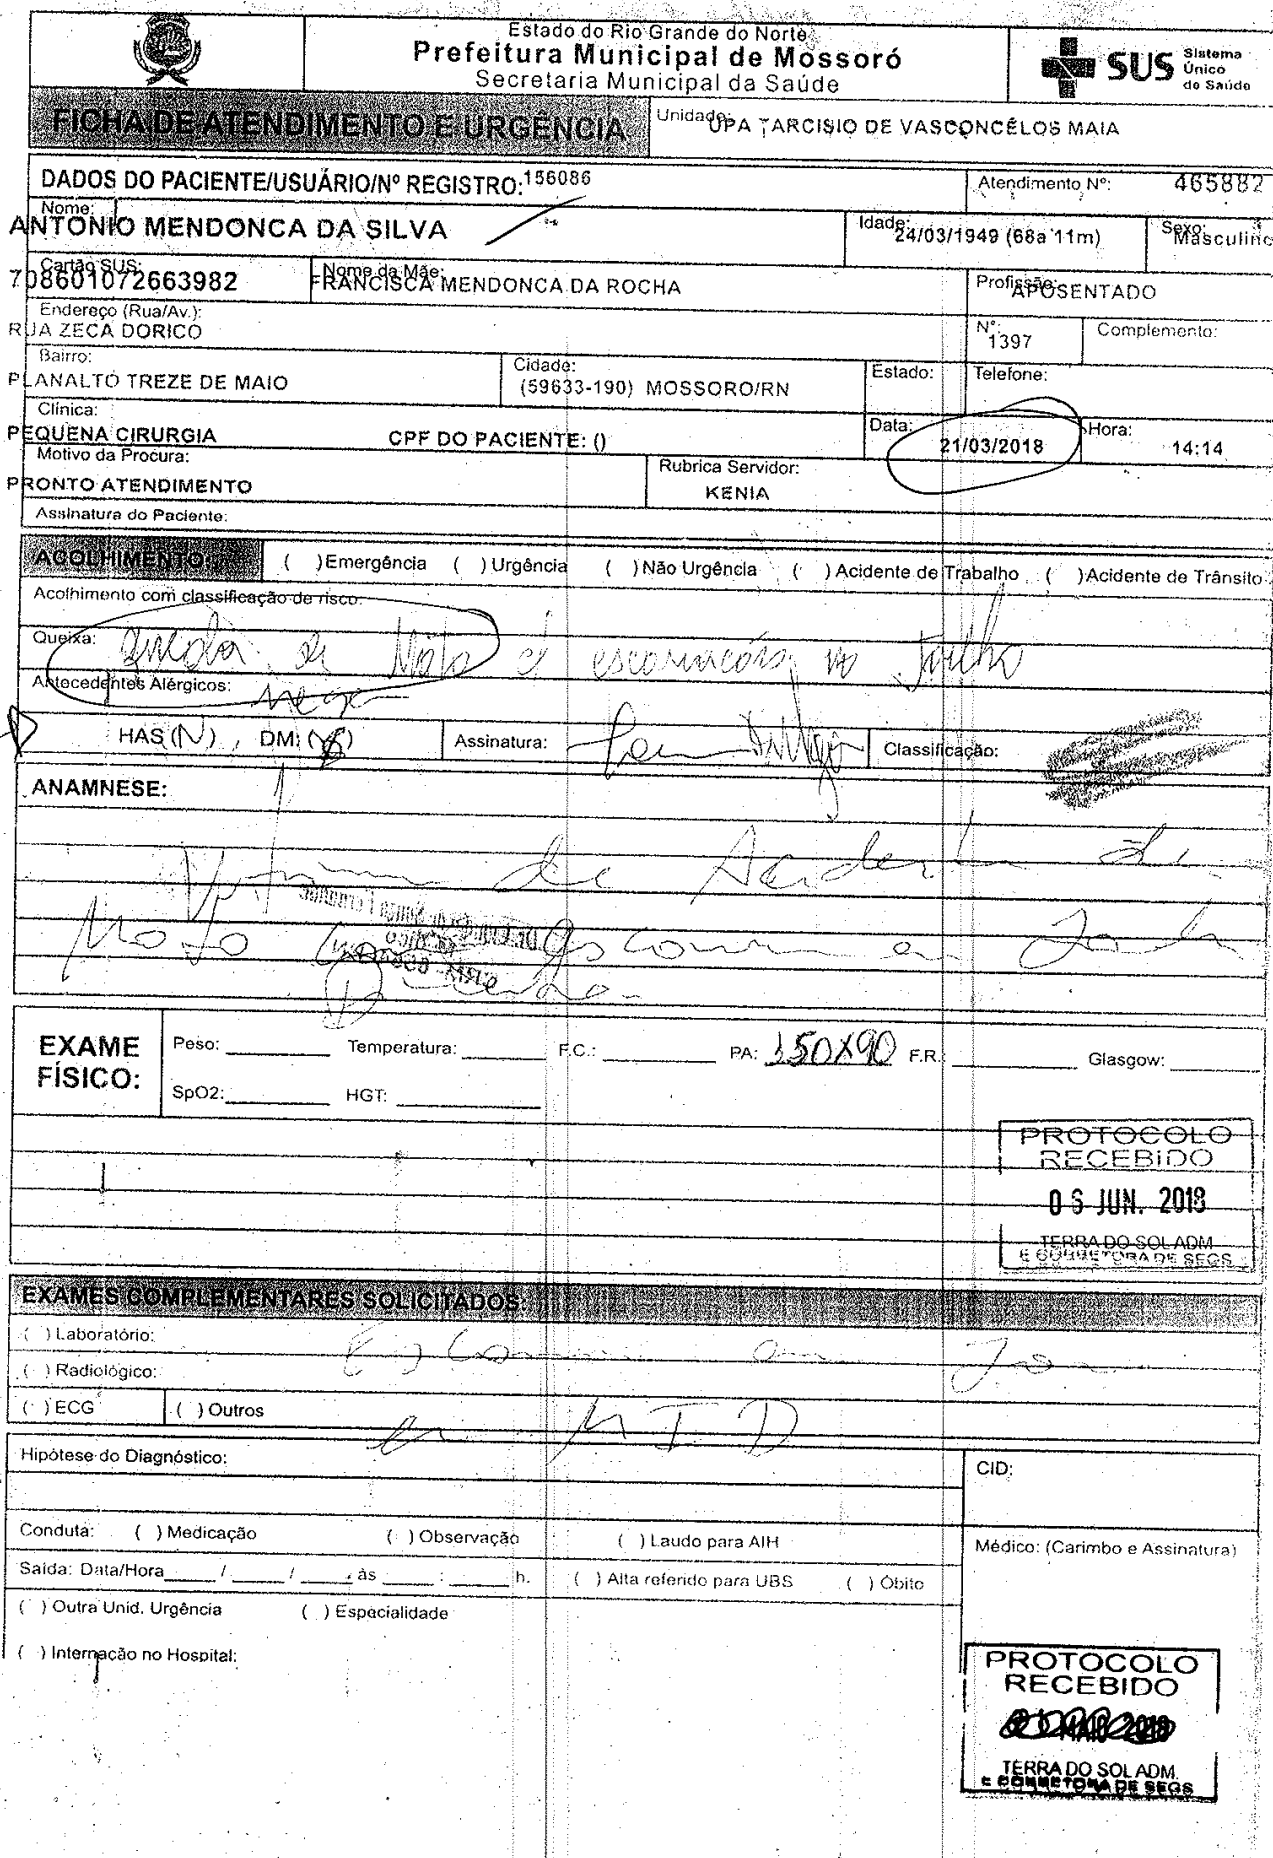 Estado do Rio Grande do Norte
Prefeitura Municipal de Mossoró
Secretaria Municipal da Saúde
SUS Sistema Único de Saúde
FICHA DE ATENDIMENTO E URGÊNCIA
Unidade: UPA TARCISIO DE VASCONCELOS MAIA
DADOS DO PACIENTE/USUÁRIO/Nº REGISTRO: 156086
Atendimento Nº: 465882
Nome: ANTONIO MENDONCA DA SILVA
Idade: 24/03/1949 (68a 11m)
Sexo: Masculino
Cartão SUS: 708601072663982
Nome da Mãe: FRANCISCA MENDONCA DA ROCHA
Profissão: APOSENTADO
Endereço (Rua/Av.): RUA ZECA DORICO
Nº: 1397
Complemento:
Bairro: PLANALTO TREZE DE MAIO
Cidade: (59633-190) MOSSORO/RN
Estado:
Telefone:
Clínica: PEQUENA CIRURGIA
CPF DO PACIENTE: ()
Data: 21/03/2018
Hora: 14:14
Motivo da Procura: PRONTO ATENDIMENTO
Rubrica Servidor: KENIA
Assinatura do Paciente:
ACOLHIMENTO: ( )Emergência ( ) Urgência ( ) Não Urgência ( ) Acidente de Trabalho ( )Acidente de Trânsito
Acolhimento com classificação de risco:
Queixa: queda de Moto c/ escoriações no joelho
Antecedentes Alérgicos: nega
HAS (N), DM: ( )
Assinatura:
Classificação:
ANAMNESE:
Vitima de Acidente de
Moto com
EXAME FÍSICO:
Peso: Temperatura: F.C.: PA: 150X90 F.R.: Glasgow:
SpO2: HGT:
PROTOCOLO
RECEBIDO
06 JUN. 2018
TERRA DO SOL ADM.
E CORRETORA DE SEGS
EXAMES COMPLEMENTARES SOLICITADOS:
( ) Laboratório:
( ) Radiológico:
( ) ECG ( ) Outros
MID
Hipótese do Diagnóstico:
CID:
Conduta: ( ) Medicação ( ) Observação ( ) Laudo para AIH
Médico: (Carimbo e Assinatura)
Saída: Data/Hora / / às : h. ( ) Alta referido para UBS ( ) Óbito
( ) Outra Unid. Urgência ( ) Especialidade
( ) Internação no Hospital:
PROTOCOLO
RECEBIDO
MAIO 2018
TERRA DO SOL ADM.
E CORRETORA DE SEGS